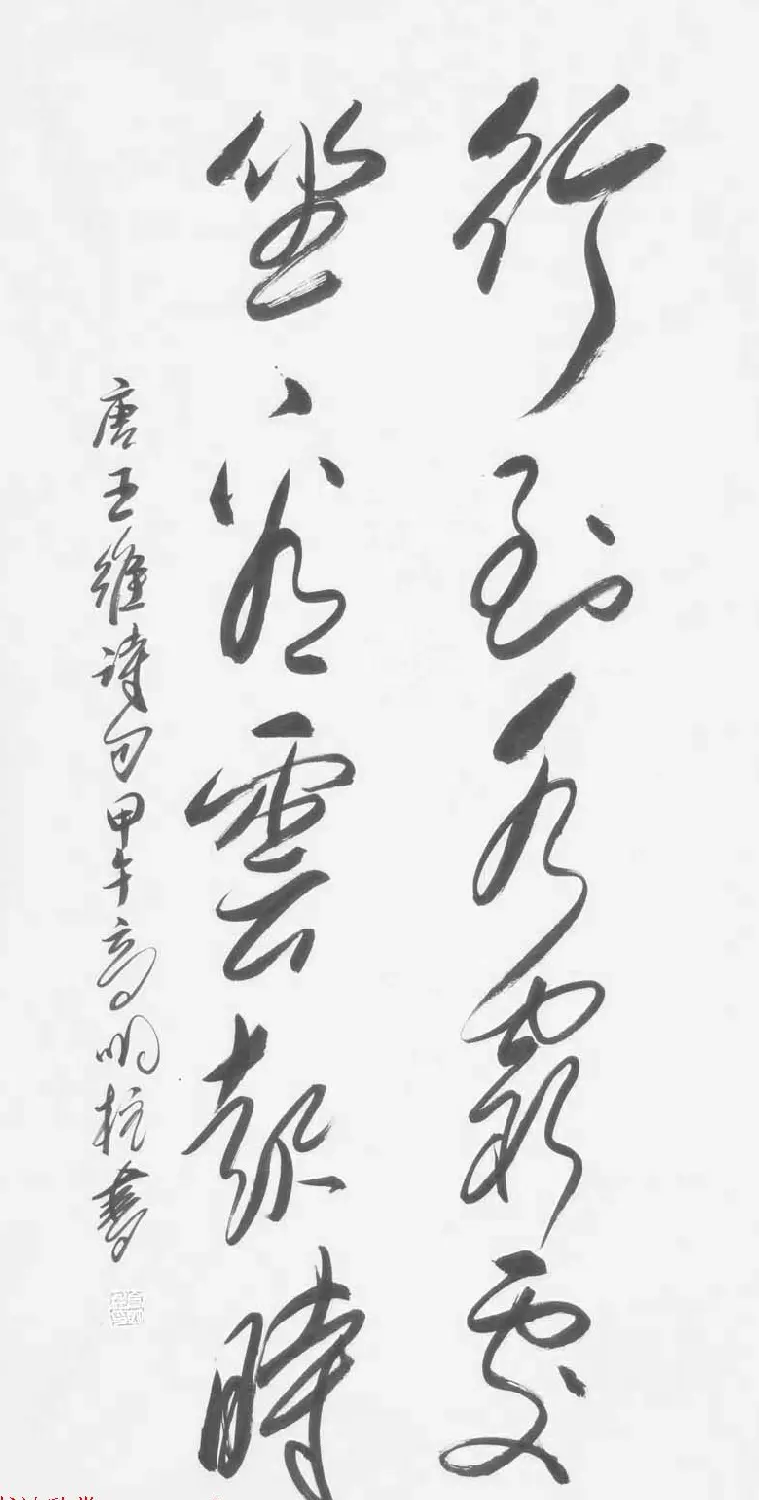 行到水窮處
坐看雲起時
唐王維詩句甲午高明柱書